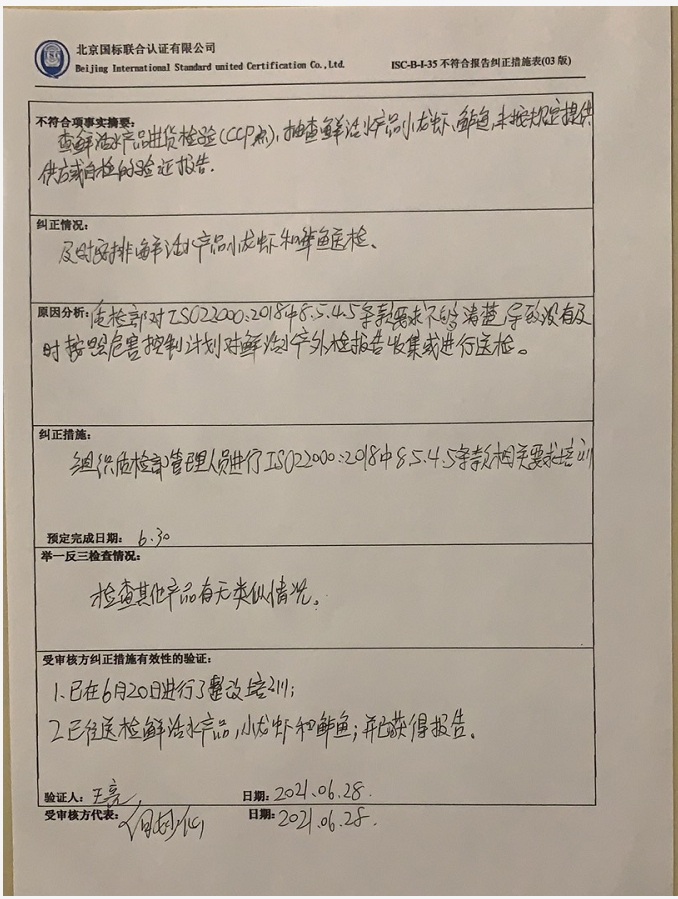 北京国标联合认证有限公司
Beijing International Standard united Certification Co.,Ltd.
ISC-B-I-35 不符合报告纠正措施表(03 版)
不符合项事实摘要:
查鲜活水产品进货检验(CCP点),抽查鲜活水产品小龙虾、鲈鱼,未按规定提供
供方或自检的验证报告.
纠正情况:
及时安排鲜活水产品小龙虾和鲈鱼送检、
原因分析: 质检部对ISO22000:2018中8.5.4.5条款要求不够清楚,导致没有及
时按照危害控制计划对鲜活水产外检报告收集或进行送检。
纠正措施:
组织质检部管理人员进行ISO22000:2018中8.5.4.5条款相关要求培训
预定完成日期: 6.30
举一反三检查情况:
检查其他产品有无类似情况。
受审核方纠正措施有效性的验证:
1.已在6月20日进行了整改培训;
2.已经送检鲜活水产品,小龙虾和鲈鱼;并已获得报告。
验证人: 王亮 日期: 2021.06.28.
受审核方代表: 日期: 2021.06.28.